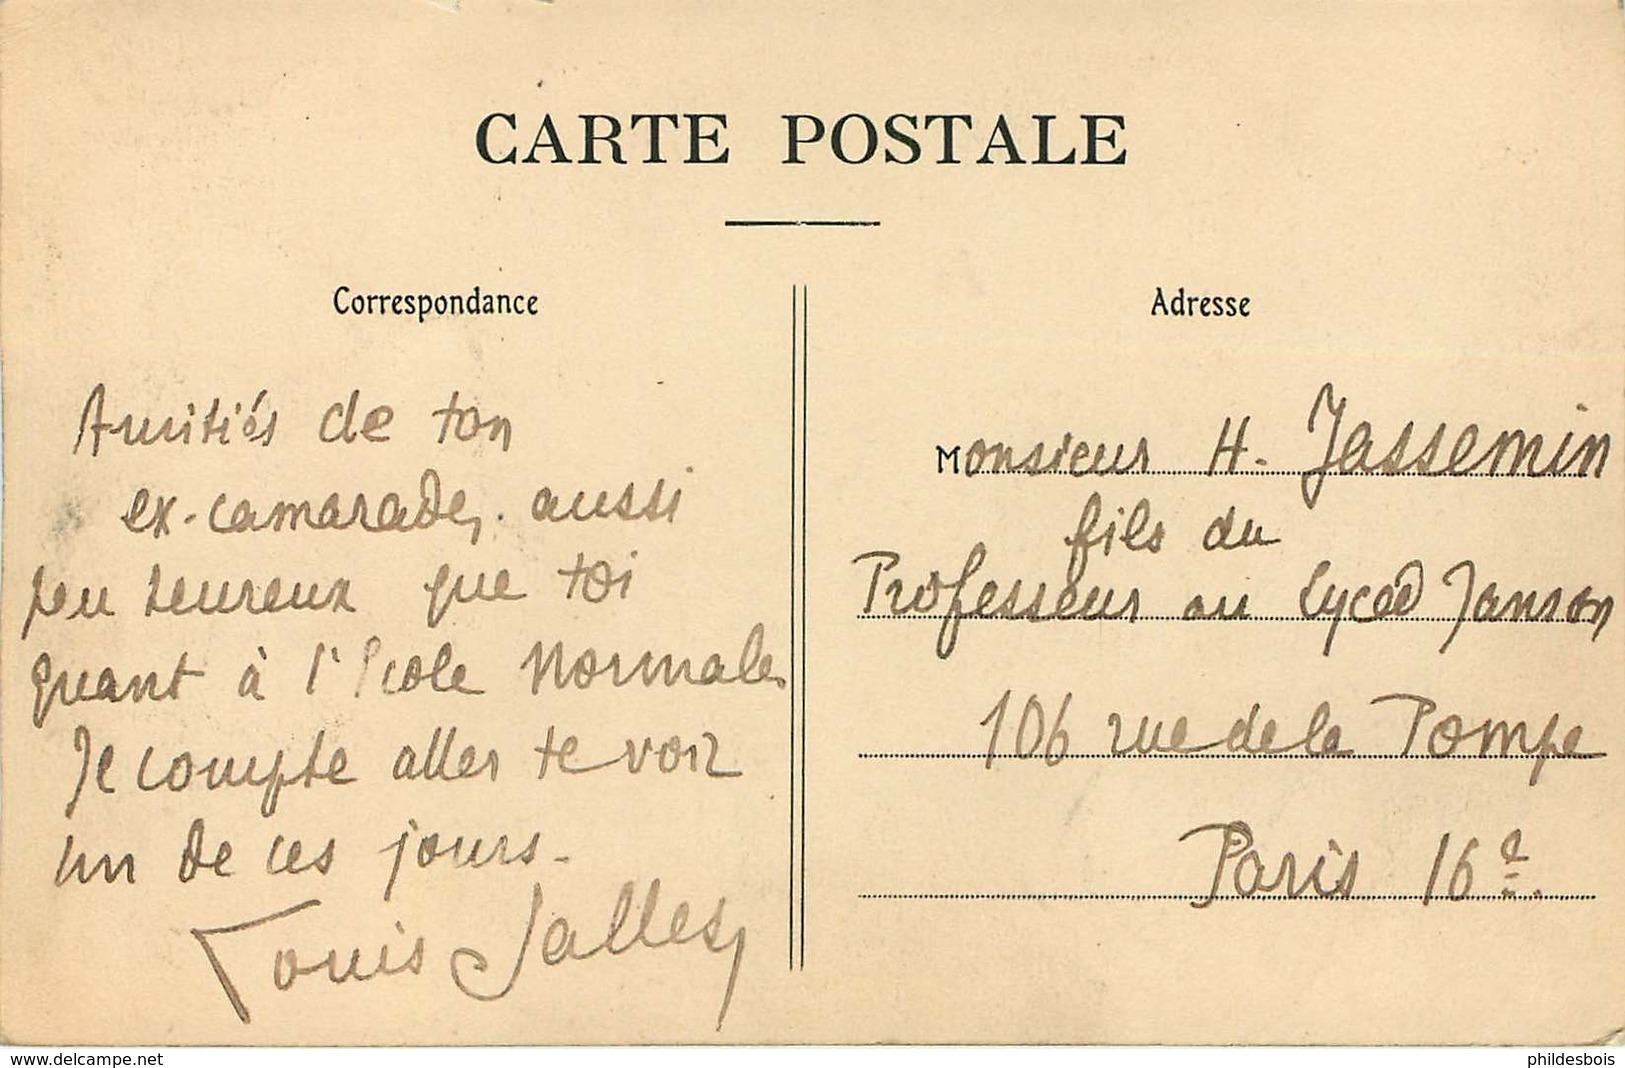 CARTE POSTALE
Correspondance
Amitiés de ton
ex-camarade, aussi
peu heureux que toi
quant à l'Ecole Normale.
Je compte aller te voir
un de ces jours.
Louis Salles
Adresse
Monsieur H. Jassemin
fils du
Professeur au Lycée Janson
106 rue de la Pompe
Paris 16e.
www.delcampe.net
phildesbois